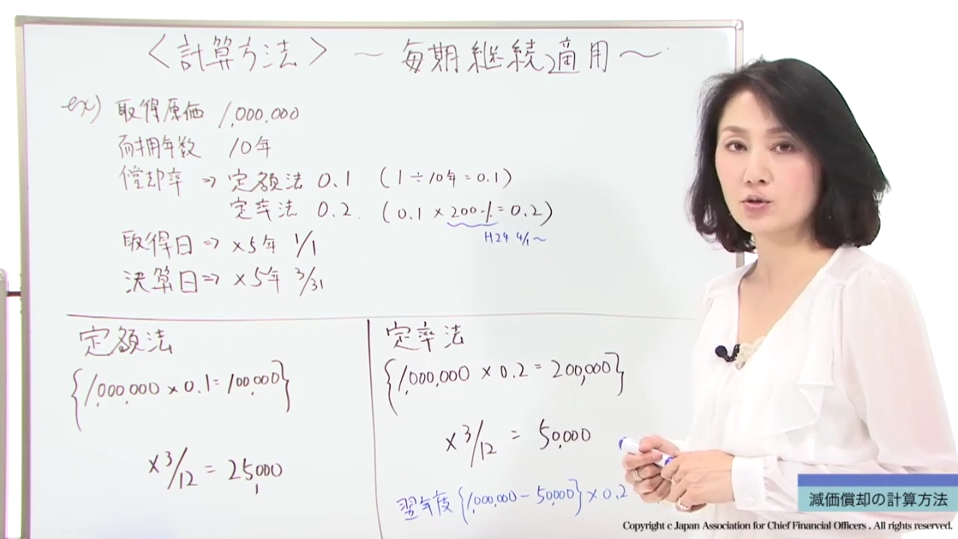 〈計算方法〉 ～毎期継続適用～
ex) 取得原価 1,000,000
耐用年数 10年
償却率 → 定額法 0.1 (1÷10年=0.1)
定率法 0.2 (0.1×200%=0.2)
H24 4/1～
取得日 ⇒ ×5年 1/1
決算日 ⇒ ×5年 3/31
定額法
{1,000,000×0.1=100,000}
×3/12=25,000
定率法
{1,000,000×0.2=200,000}
×3/12=50,000
翌年度{1,000,000-50,000}×0.2
減価償却の計算方法
Copyright c Japan Association for Chief Financial Officers . All rights reserved.